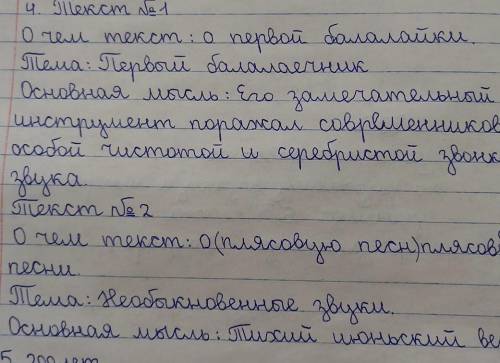 4. Текст №1
О чем текст: о первой балалайки.
Тема: Первый балалаечник
Основная мысль: Его замечательный
инструмент поражал современников
особой чистотой и серебристой звонк
звука.
Текст №2
О чем текст: О(плясовую песн)плясов
песни.
Тема: Необыкновенные звуки.
Основная мысль: Тихий июньский ве
5. 200 лет